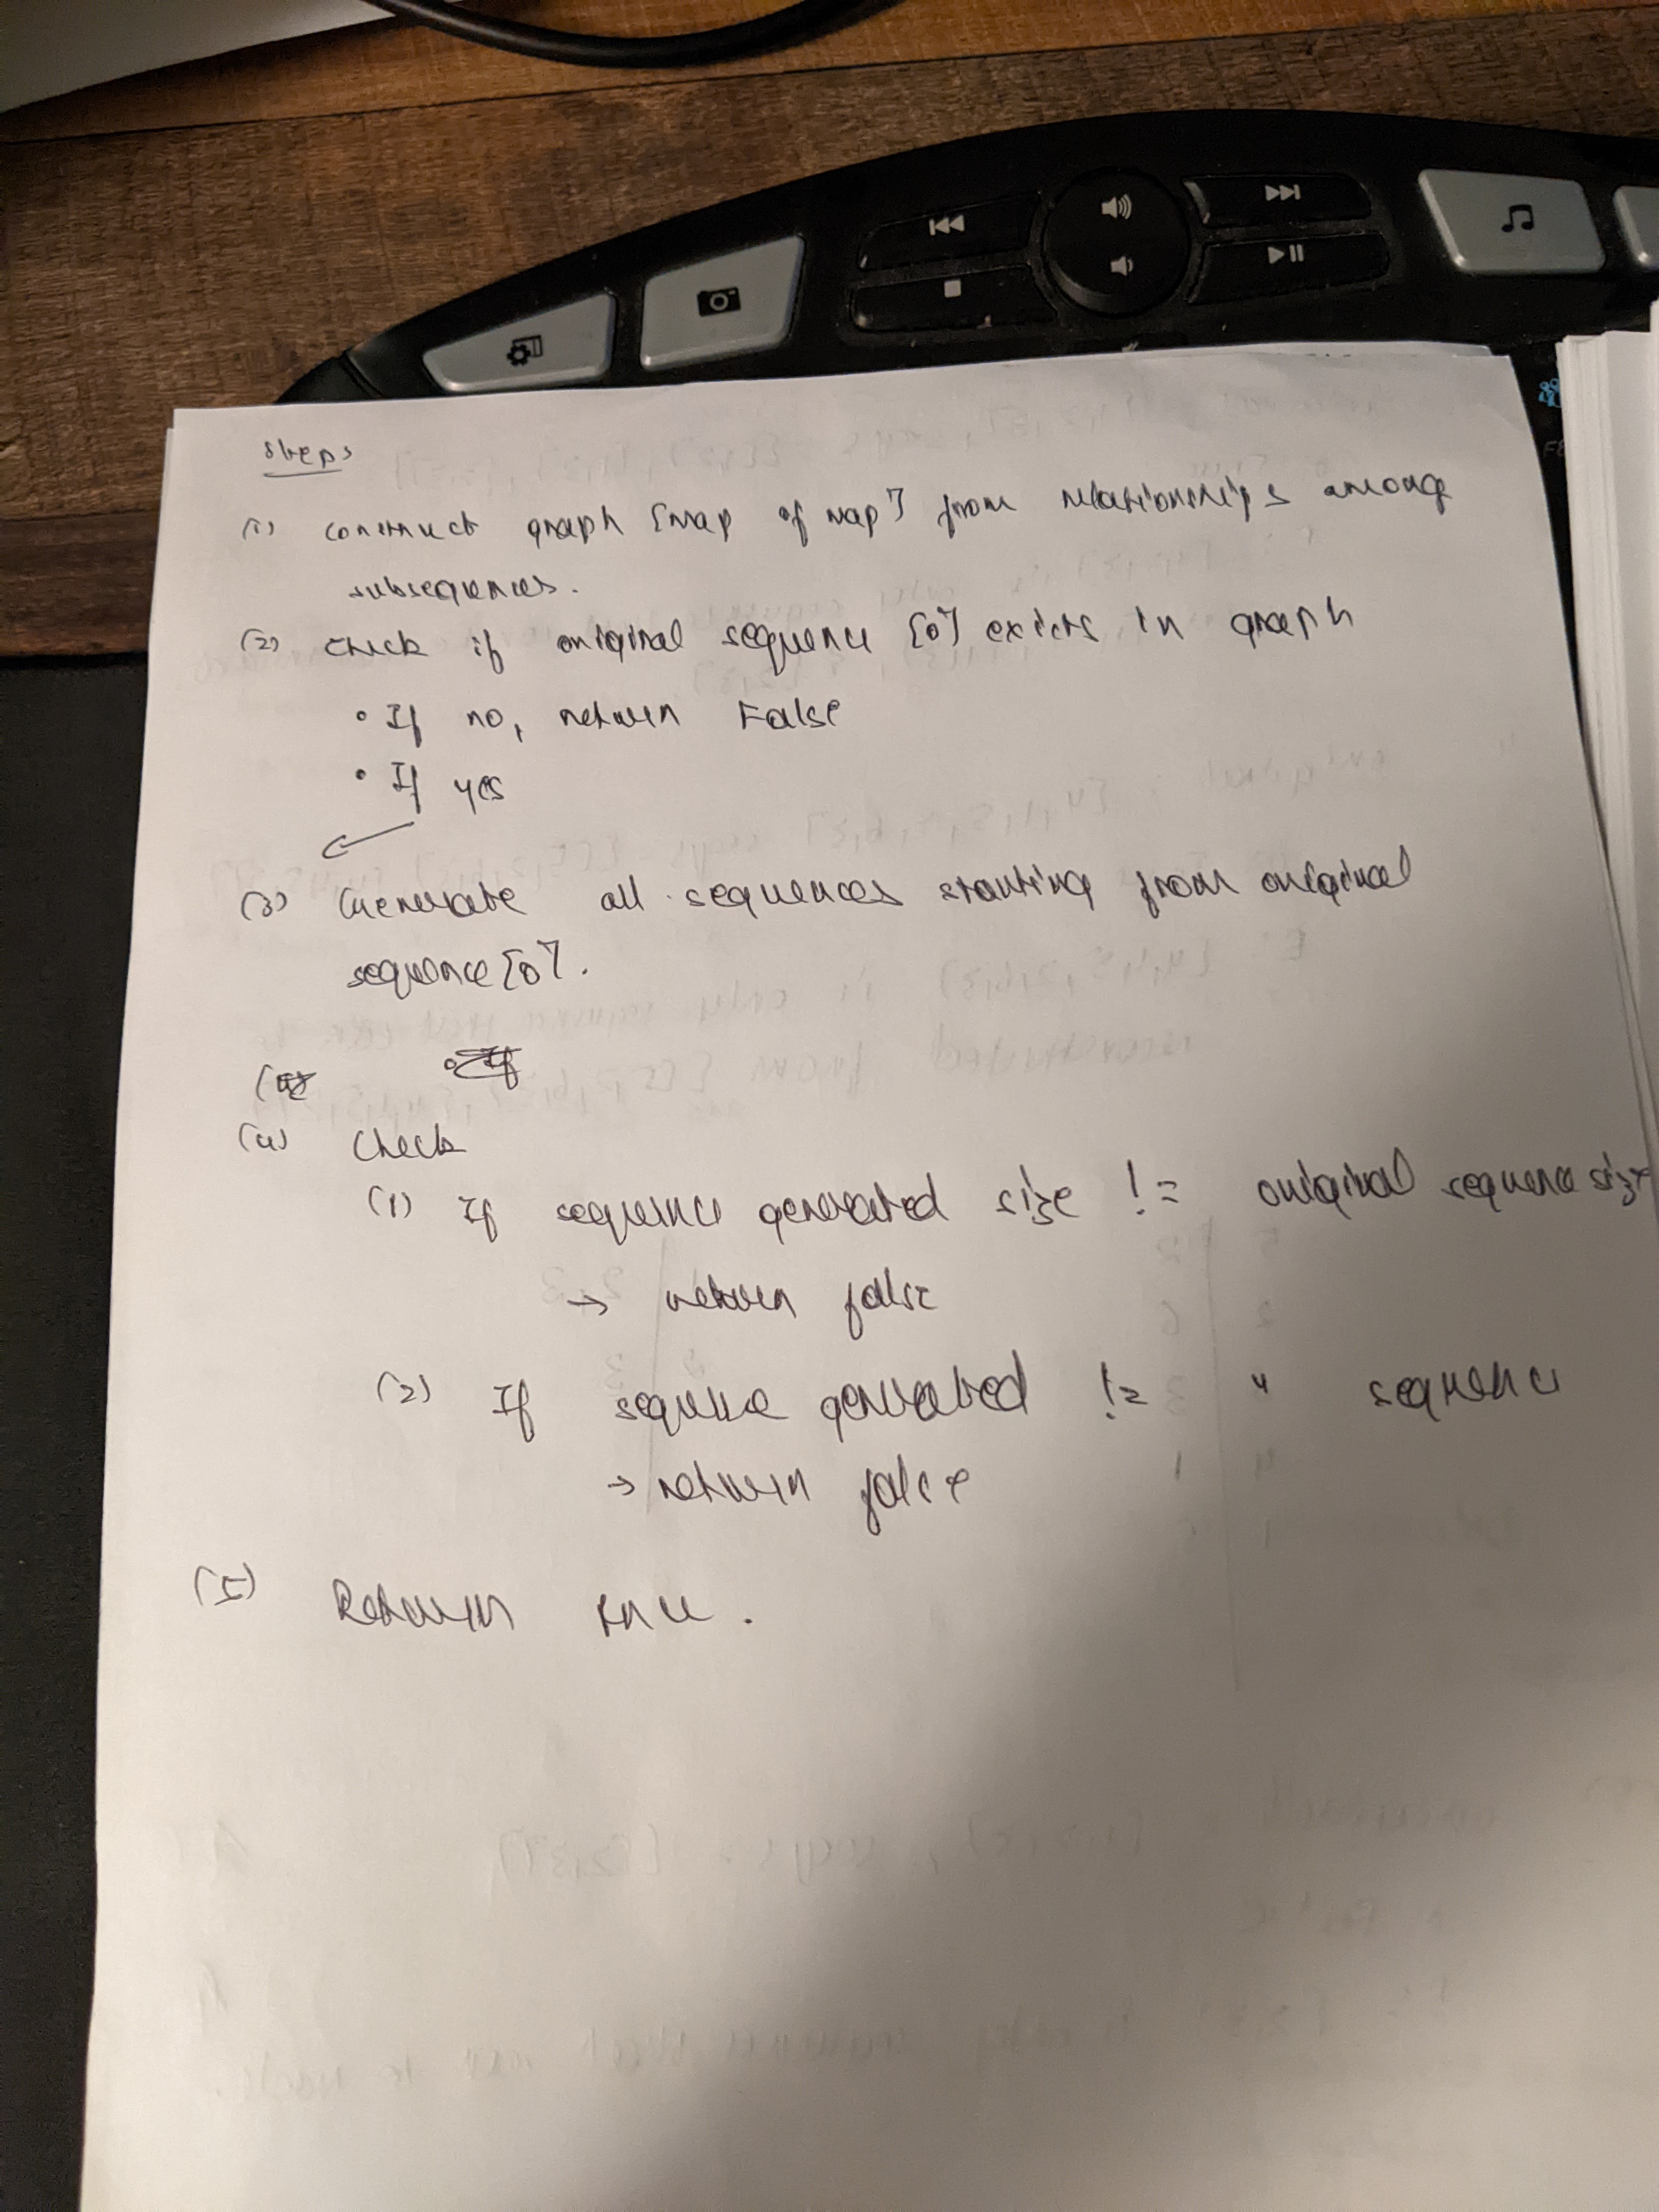 Steps
(1) construct graph [map of map] from relationships among
subsequences.
(2) check if original sequence [0] exists in graph
• If no, return False
• If yes
(3) Generate all sequences starting from original
sequence [0].
(4) Check
(1) If sequence generated size != original sequence size
→ return false
(2) If sequence generated != " sequence
→ return false
(5) Return true.